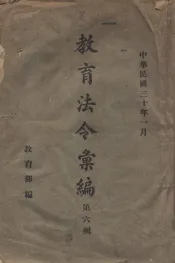 中華民國三十年一月
教育法令彙編
第六輯
教育部編